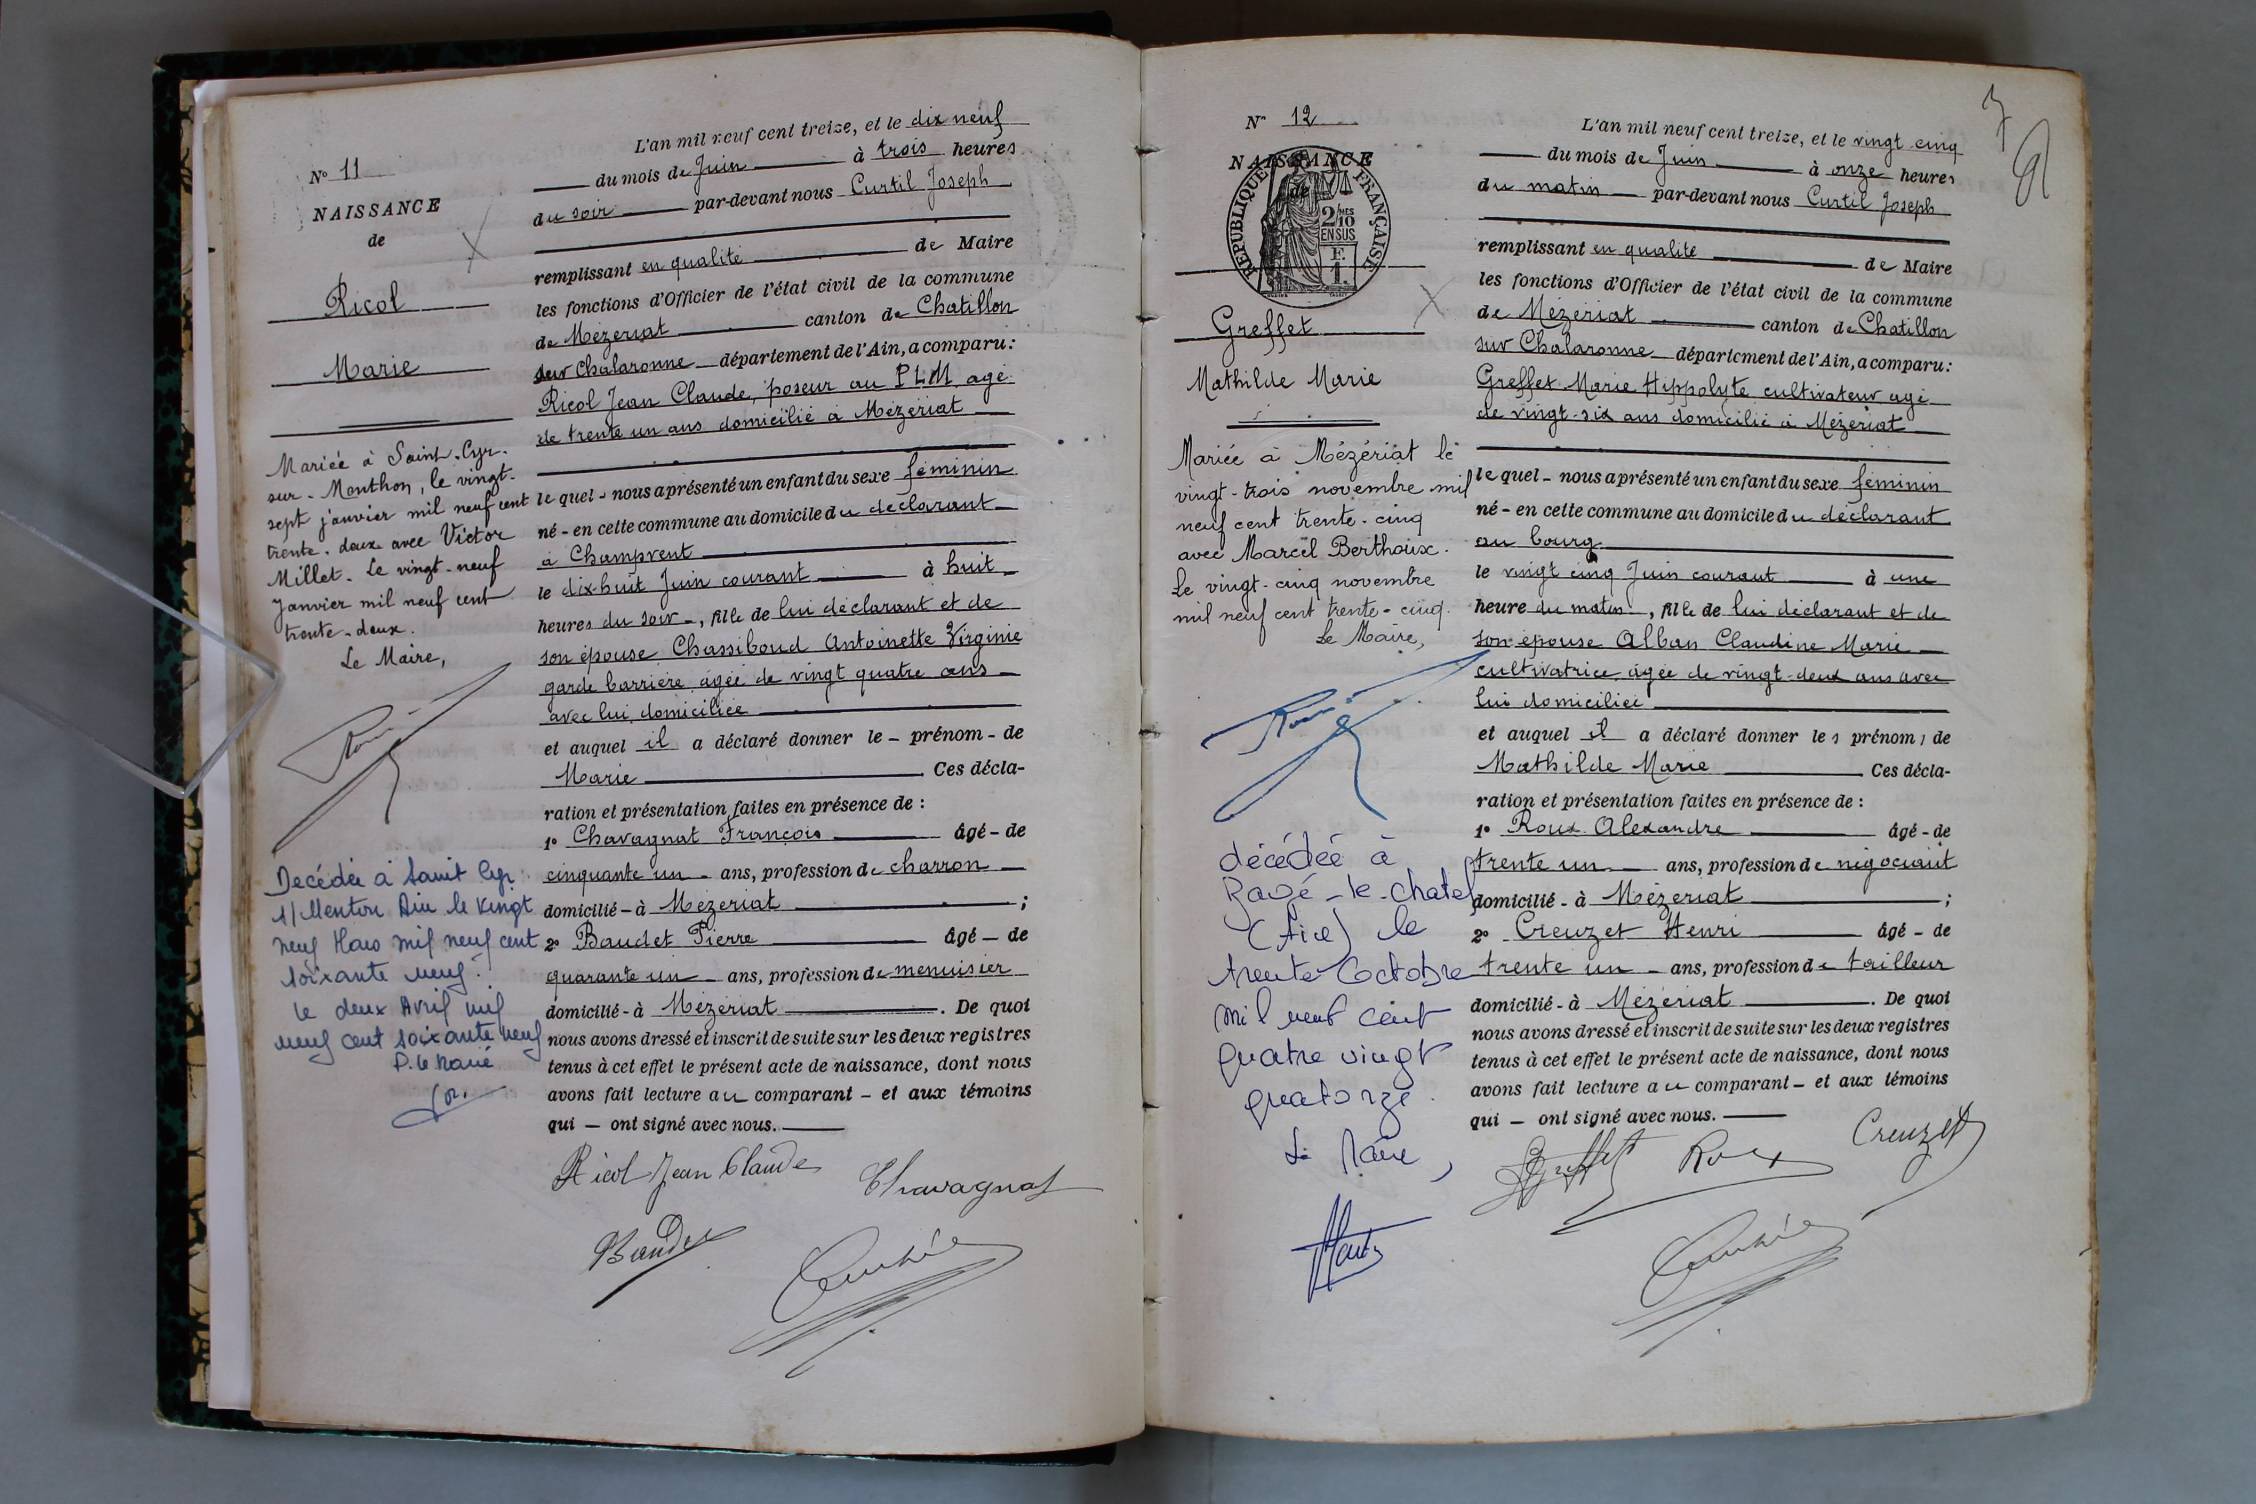 N° 11
NAISSANCE
de
Ricol
Marie
Mariée à Saint-Cyr-
sur-Menthon, le vingt-
sept janvier mil neuf cent
trente-deux avec Victor
Millet. Le vingt-neuf
janvier mil neuf cent
trente-deux.
Le Maire,
Decédée à Saint Cyr
s/ Menton Ain le vingt
neuf Mars mil neuf cent
soixante neuf.
le deux Avril mil
neuf cent soixante neuf
P. le Maire
L'an mil neuf cent treize, et le dix neuf
du mois de Juin à trois heures
du soir par-devant nous Curtil Joseph
remplissant en qualité de Maire
les fonctions d'Officier de l'état civil de la commune
de Mézériat canton de Chatillon
sur Chalaronne département de l'Ain, a comparu :
Ricol Jean Claude, poseur au PLM agé
de trente un ans domicilié à Mézériat
le quel - nous a présenté un enfant du sexe féminin
né - en cette commune au domicile du déclarant
à Champvent
le dix-huit Juin courant à huit
heures du soir -, fille de lui déclarant et de
son épouse Chassiboud Antoinette Virginie
garde barrière, agée de vingt quatre ans
avec lui domiciliée
et auquel il a déclaré donner le - prénom - de
Marie Ces décla-
ration et présentation faites en présence de :
1° Chavagnat François âgé - de
cinquante un - ans, profession de charron
domicilié - à Mézériat ;
2° Baudet Pierre âgé - de
quarante un - ans, profession de menuisier
domicilié - à Mézériat . De quoi
nous avons dressé et inscrit de suite sur les deux registres
tenus à cet effet le présent acte de naissance, dont nous
avons fait lecture au comparant - et aux témoins
qui - ont signé avec nous.
Ricol Jean Claude Chavagnat
Baudet
N° 12
NAISSANCE
de
RÉPUBLIQUE FRANÇAISE
2/10 MES
EN SUS
F.
1.
Greffet
Mathilde Marie
Mariée à Mézériat le
vingt-trois novembre mil
neuf cent trente-cinq
avec Marcel Berthoux.
Le vingt-cinq novembre
mil neuf cent trente-cinq.
Le Maire,
décédée à
le
trente Octobre
mil neuf cent
quatre vingt
quatorze.
Le Maire,
7
L'an mil neuf cent treize, et le vingt cinq
du mois de Juin à onze heures
du matin par-devant nous Curtil Joseph
remplissant en qualité de Maire
les fonctions d'Officier de l'état civil de la commune
de Mézériat canton de Chatillon
sur Chalaronne département de l'Ain, a comparu :
Greffet Marie Hippolyte cultivateur agé
de vingt-six ans domicilié à Mézériat
le quel - nous a présenté un enfant du sexe féminin
né - en cette commune au domicile du déclarant
au bourg
le vingt cinq Juin courant à une
heure du matin, fille de lui déclarant et de
son épouse Alban Claudine Marie
cultivatrice agée de vingt-deux ans avec
lui domiciliée
et auquel il a déclaré donner les prénoms de
Mathilde Marie Ces décla-
ration et présentation faites en présence de :
1° Roux Alexandre âgé - de
trente un ans, profession de négociant
domicilié - à Mézériat ;
2° Creuzet Henri âgé - de
trente un - ans, profession de tailleur
domicilié - à Mézériat . De quoi
nous avons dressé et inscrit de suite sur les deux registres
tenus à cet effet le présent acte de naissance, dont nous
avons fait lecture au comparant - et aux témoins
qui - ont signé avec nous.
Greffet Roux Creuzet